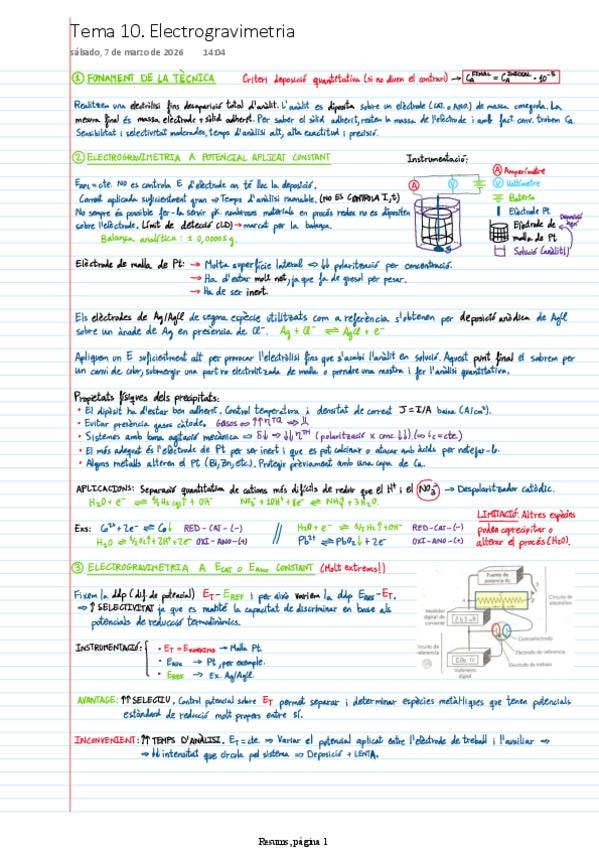 Tema 10. Electrogravimetria
sábado, 7 de marzo de 2026 14:04
① FONAMENT DE LA TÈCNICA Criteri deposició quantitativa (si no diuen el contrari) → C_A^FINAL = C_A^INICIAL · 10⁻⁵
Realitzem una electròlisi fins desaparició total d'anàlit. L'anàlit es diposita sobre un elèctrode (CAT. o ANO.) de massa coneguda. La
mesura final és massa elèctrode + sòlid adherit. Per saber el sòlid adherit, restem la massa de l'elèctrode i amb fact. conv. trobem CA.
Sensibilitat i selectivitat moderades, temps d'anàlisi alt, alta exactitud i precisió.
② ELECTROGRAVIMETRIA A POTENCIAL APLICAT CONSTANT
Instrumentació:
EAPL = cte. NO es controla E d'elèctrode on té lloc la deposició.
Corrent aplicada suficientment gran ⇒ Temps d'anàlisi raonable. (NO ES CONTROLA I, t)
No sempre és possible fer-la servir pk. nombrosos materials en procés redox no es dipositen
sobre l'elèctrode. Límit de detecció (LD) → marcat per la balança.
Balança analítica: ± 0,0001 g.
A Amperímetre
V Voltímetre
Bateria
Elèctrode Pt
Elèctrode de
malla de Pt
Solució (anàlit)
Elèctrode de malla de Pt: → Molta superfície lateral ⇒ ↓↓ polarització per concentració.
→ Ha d'estar molt net, ja que fa de gresol per pesar.
→ Ha de ser inert.
Els elèctrodes de Ag/AgCl de segona espècie utilitzats com a referència s'obtenen per deposició anòdica de AgCl
sobre un ànode de Ag en presència de Cl⁻. Ag + Cl⁻ ⇌ AgCl + e⁻
Apliquem un E suficientment alt per provocar l'electròlisi fins que s'acabi l'anàlit en solució. Aquest punt final el sabrem per
un canvi de color, submergir una part no electrolitzada de malla o prendre una mostra i fer l'anàlisi quantitativa.
Propietats físiques dels precipitats:
• El dipòsit ha d'estar ben adherit. Control temperatura i densitat de corrent J = I/A baixa (A/cm²).
• Evitar presència gasos càtode. Gasos ⇒ ↑↑ηTQ ⇒ ↓↓
• Sistemes amb bona agitació mecànica ⇒ δ↓ ⇒ ↓↓ηTM (polarització x conc. ↓↓). (⇒ ic = cte.)
• El més adequat és l'elèctrode de Pt per ser inert i que es pot calcinar o atacar amb àcids per netejar-lo.
• Alguns metalls alteren el Pt (Bi, Zn, etc.). Protegir prèviament amb una capa de Cu.
APLICACIONS: Separació quantitativa de cations més difícils de reduir que el H⁺ i el NO₃⁻ → Despolaritzador catòdic.
H₂O + e⁻ ⇌ ½H₂(g)↑ + OH⁻ NO₃⁻ + 10H⁺ + 8e⁻ ⇌ NH₄⁺ + 3H₂O.
LIMITACIÓ: Altres espècies
poden coprecipitar o
alterar el procés (H₂O).
Exs: Cu²⁺ + 2e⁻ ⇌ Cu↓ RED-CAT-(-) // H₂O + e⁻ ⇌ ½H₂↑ + OH⁻ RED-CAT-(-)
H₂O ⇌ ½O₂↑ + 2H⁺ + 2e⁻ OXI-ANO-(+) Pb²⁺ ⇌ PbO₂↓ + 2e⁻ OXI-ANO-(+)
③ ELECTROGRAVIMETRIA A ECAT O EANO CONSTANT (Molt extrems!)
Fixem la ddp (dif. de potencial) ET - EREF i per això variem la ddp EAUX - ET.
⇒ ↑ SELECTIVITAT ja que es manté la capacitat de discriminar en base als
potencials de reducció termodinàmics.
INSTRUMENTACIÓ:
• ET = → Malla Pt.
• EAUX → Pt, per exemple.
• EREF → Ex. Ag/AgCl.
Fuente de
potencia dc
Circuito de
electrólisis
Medidor
digital de
corriente
Contraelectrodo
Electrodo de referencia
Electrodo de trabajo
Voltímetro
digital
AVANTATGE: ↑↑ SELECTIV. Control potencial sobre ET permet separar i determinar espècies metàl·liques que tenen potencials
estàndard de reducció molt propers entre sí.
INCONVENIENT: ↑↑ TEMPS D'ANÀLISI. ET = cte. ⇒ Variar el potencial aplicat entre l'elèctrode de treball i l'auxiliar ⇒
⇒ ↓↓ intensitat que circula pel sistema ⇒ Deposició + LENTA.
Resums, página 1